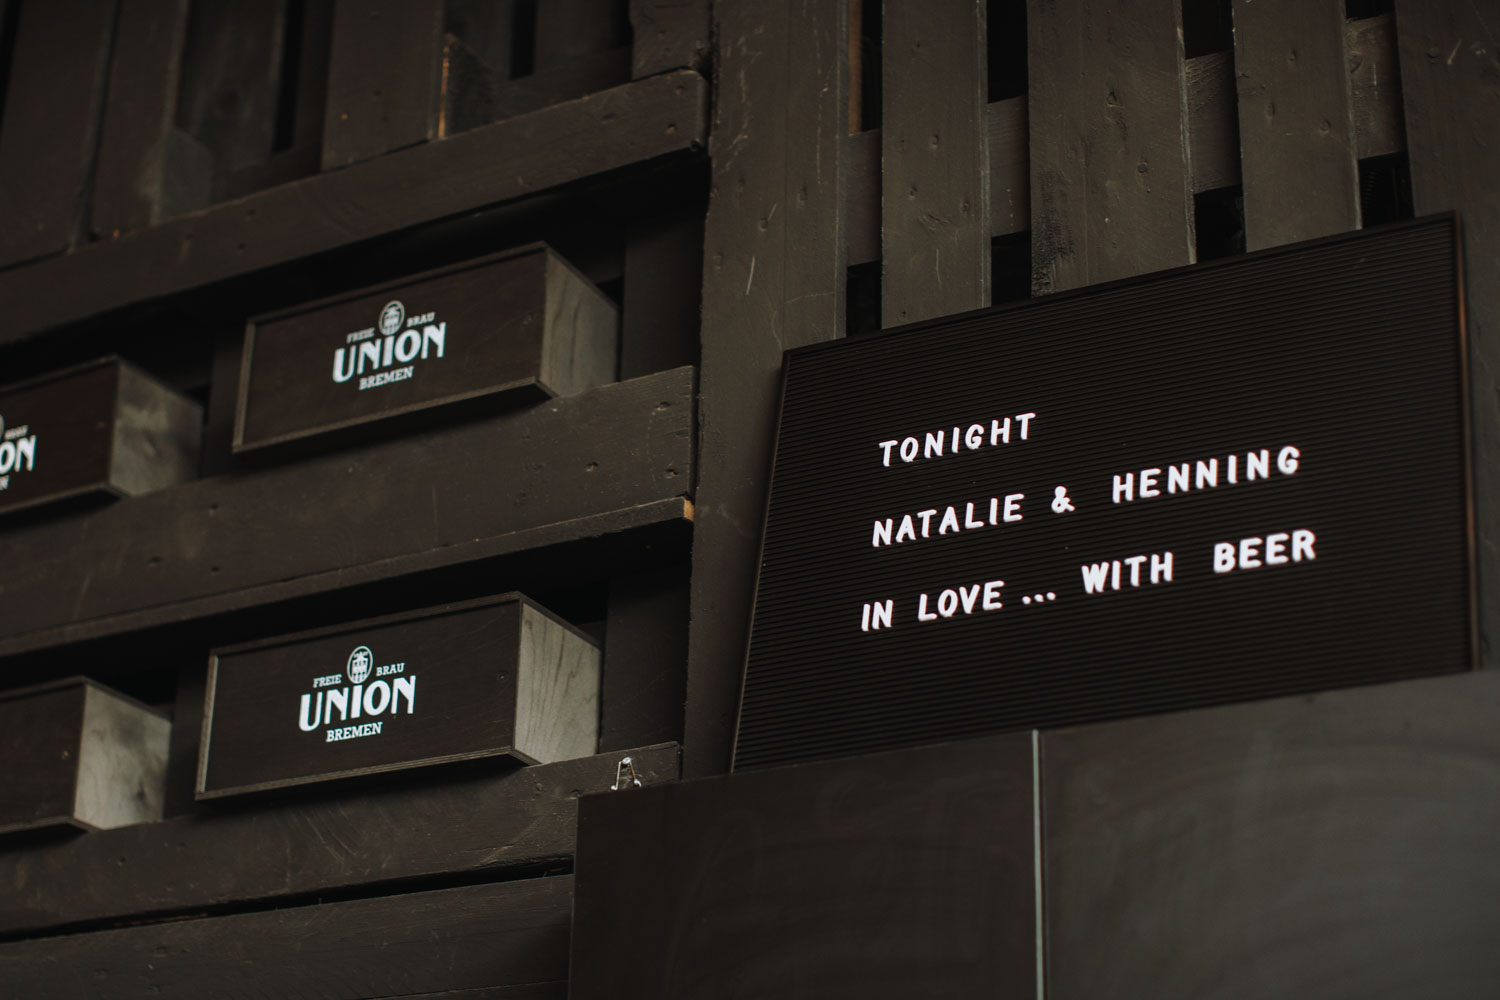 FREIE BRAU
UNION
BREMEN
ON
FREIE BRAU
UNION
BREMEN
TONIGHT
NATALIE & HENNING
IN LOVE ... WITH BEER